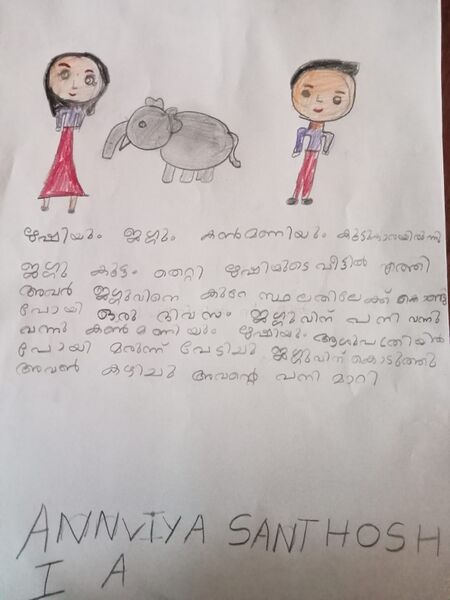 ഋഷിയും ജഗ്ഗും കൺമണിയും കൂട്ടുകാരായിരുന്നു
ജഗ്ഗു കൂട്ടം തെറ്റി ഋഷിയുടെ വീട്ടിൽ എത്തി
അവർ ജഗ്ഗുവിനെ കുറേ സ്ഥലതിലേക്ക് കൊണ്ടു
പോയി ഒരു ദിവസം ജഗ്ഗുവിന് പനി വന്നു
വന്നു കൺമണിയും ഋഷിയും ആശുപത്രിയിൽ
പോയി മരുന്ന് മേടിച്ചു ജഗ്ഗുവിന് കൊടുത്തു
അവൻ കുടിച്ചു അവന്റെ പനി മാറി
ANNVIYA SANTHOSH
I A